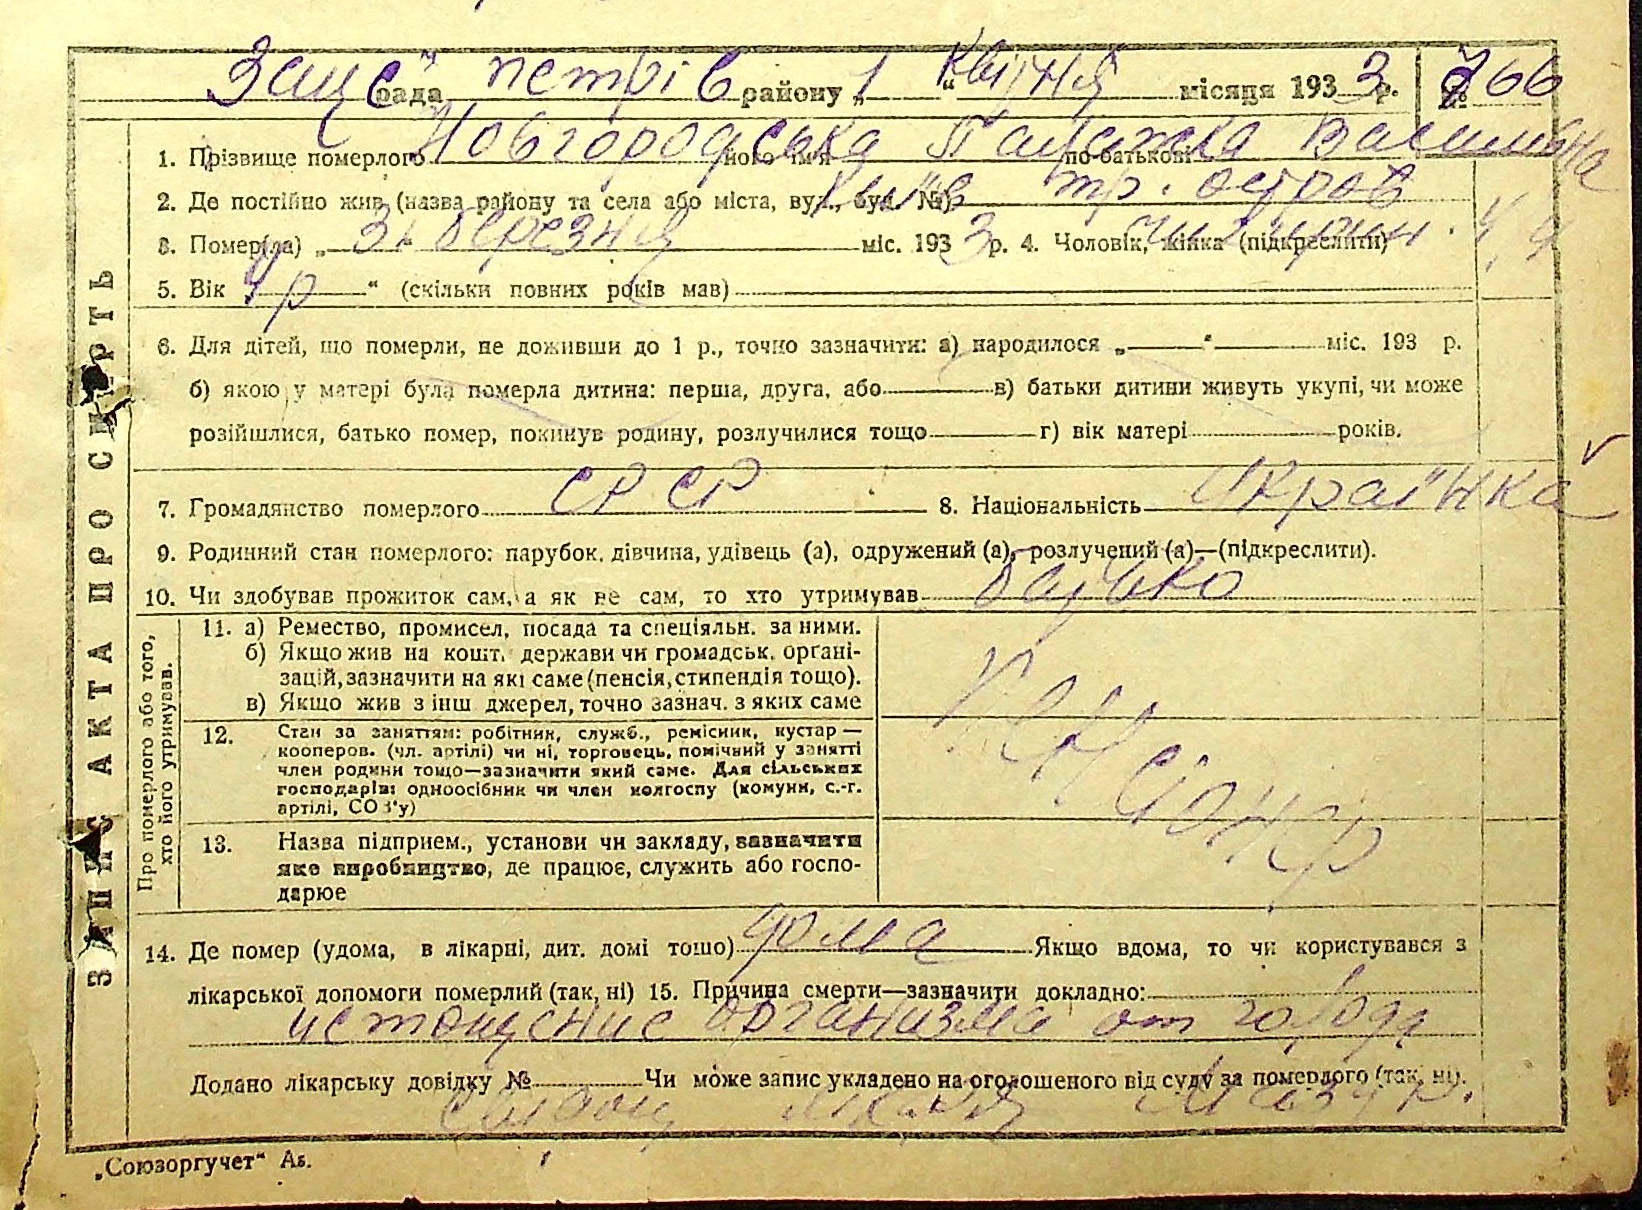 ЗАПИС АКТА ПРО СМЕРТЬ
ЗАЦС рада Петрів району „1“ Квітня місяця 1933 р. № 766
1. Прізвище померлого Новгородська його ім'я по-батькові
2. Де постійно жив (назва району та села або міста, вул., буд. №) Київ тр. остров
3. Помер(ла) „31 березня міс. 1933 р. 4. Чоловік, жінка (підкреслити)
5. Вік 4 р “ (скільки повних років мав)
6. Для дітей, що померли, не доживши до 1 р., точно зазначити: а) народилося „ “ міс. 193 р.
б) якою у матері була померла дитина: перша, друга, або в) батьки дитини живуть укупі, чи може
розійшлися, батько помер, покинув родину, розлучилися тощо г) вік матері років.
7. Громадянство померлого СРСР 8. Національність Українка
9. Родинний стан померлого: парубок, дівчина, удівець (а), одружений (а), розлучений (а)—(підкреслити).
10. Чи здобував прожиток сам, а як не сам, то хто утримував батько
Про померлого або того, хто його утримував.
11. а) Ремество, промисел, посада та спеціяльн. за ними.
б) Якщо жив на кошт. держави чи громадськ. органі-
зацій, зазначити на які саме (пенсія, стипендія тощо).
в) Якщо жив з інш джерел, точно зазнач. з яких саме
пенсіонер
12. Стан за заняттям: робітник, служб., ремісник, кустар—
кооперов. (чл. артілі) чи ні, торговець, помічний у занятті
член родини тощо—зазначити який саме. Для сільських
господарів: одноосібник чи член колгоспу (комуни, с.-г.
артілі, СОЗ'у)
13. Назва підприєм., установи чи закладу, зазначити
яке виробництво, де працює, служить або госпо-
дарює
14. Де помер (удома, в лікарні, дит. домі тощо) дома Якщо вдома, то чи користувався з
лікарської допомоги померлий (так, ні) 15. Причина смерти—зазначити докладно:
истощение организма от голода
Додано лікарську довідку № Чи може запис укладено на оголошеного від суду за померлого (так, ні).
лікаря
„Союзоргучет“ Аз.